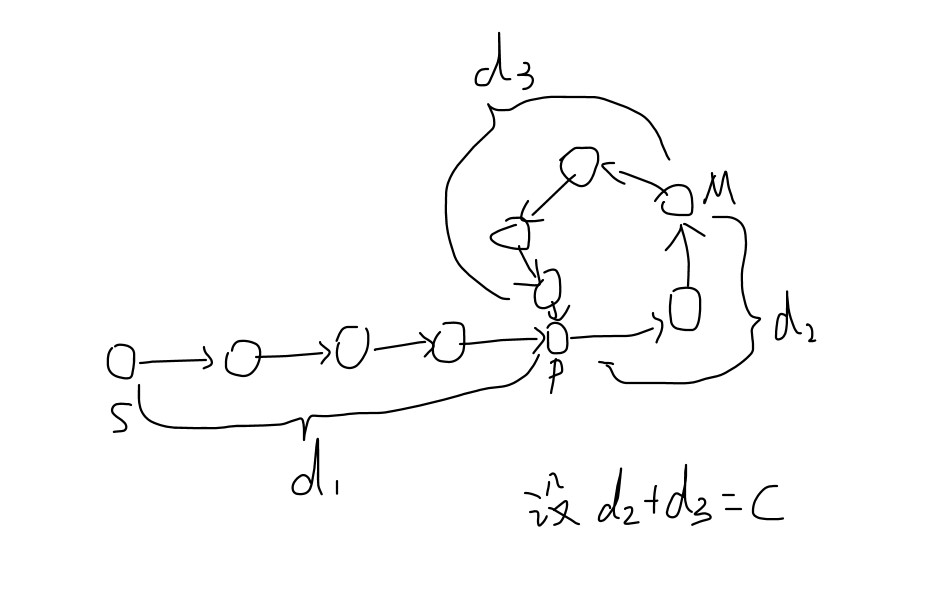 d3
M
d2
S
P
d1
设 d2+d3=C